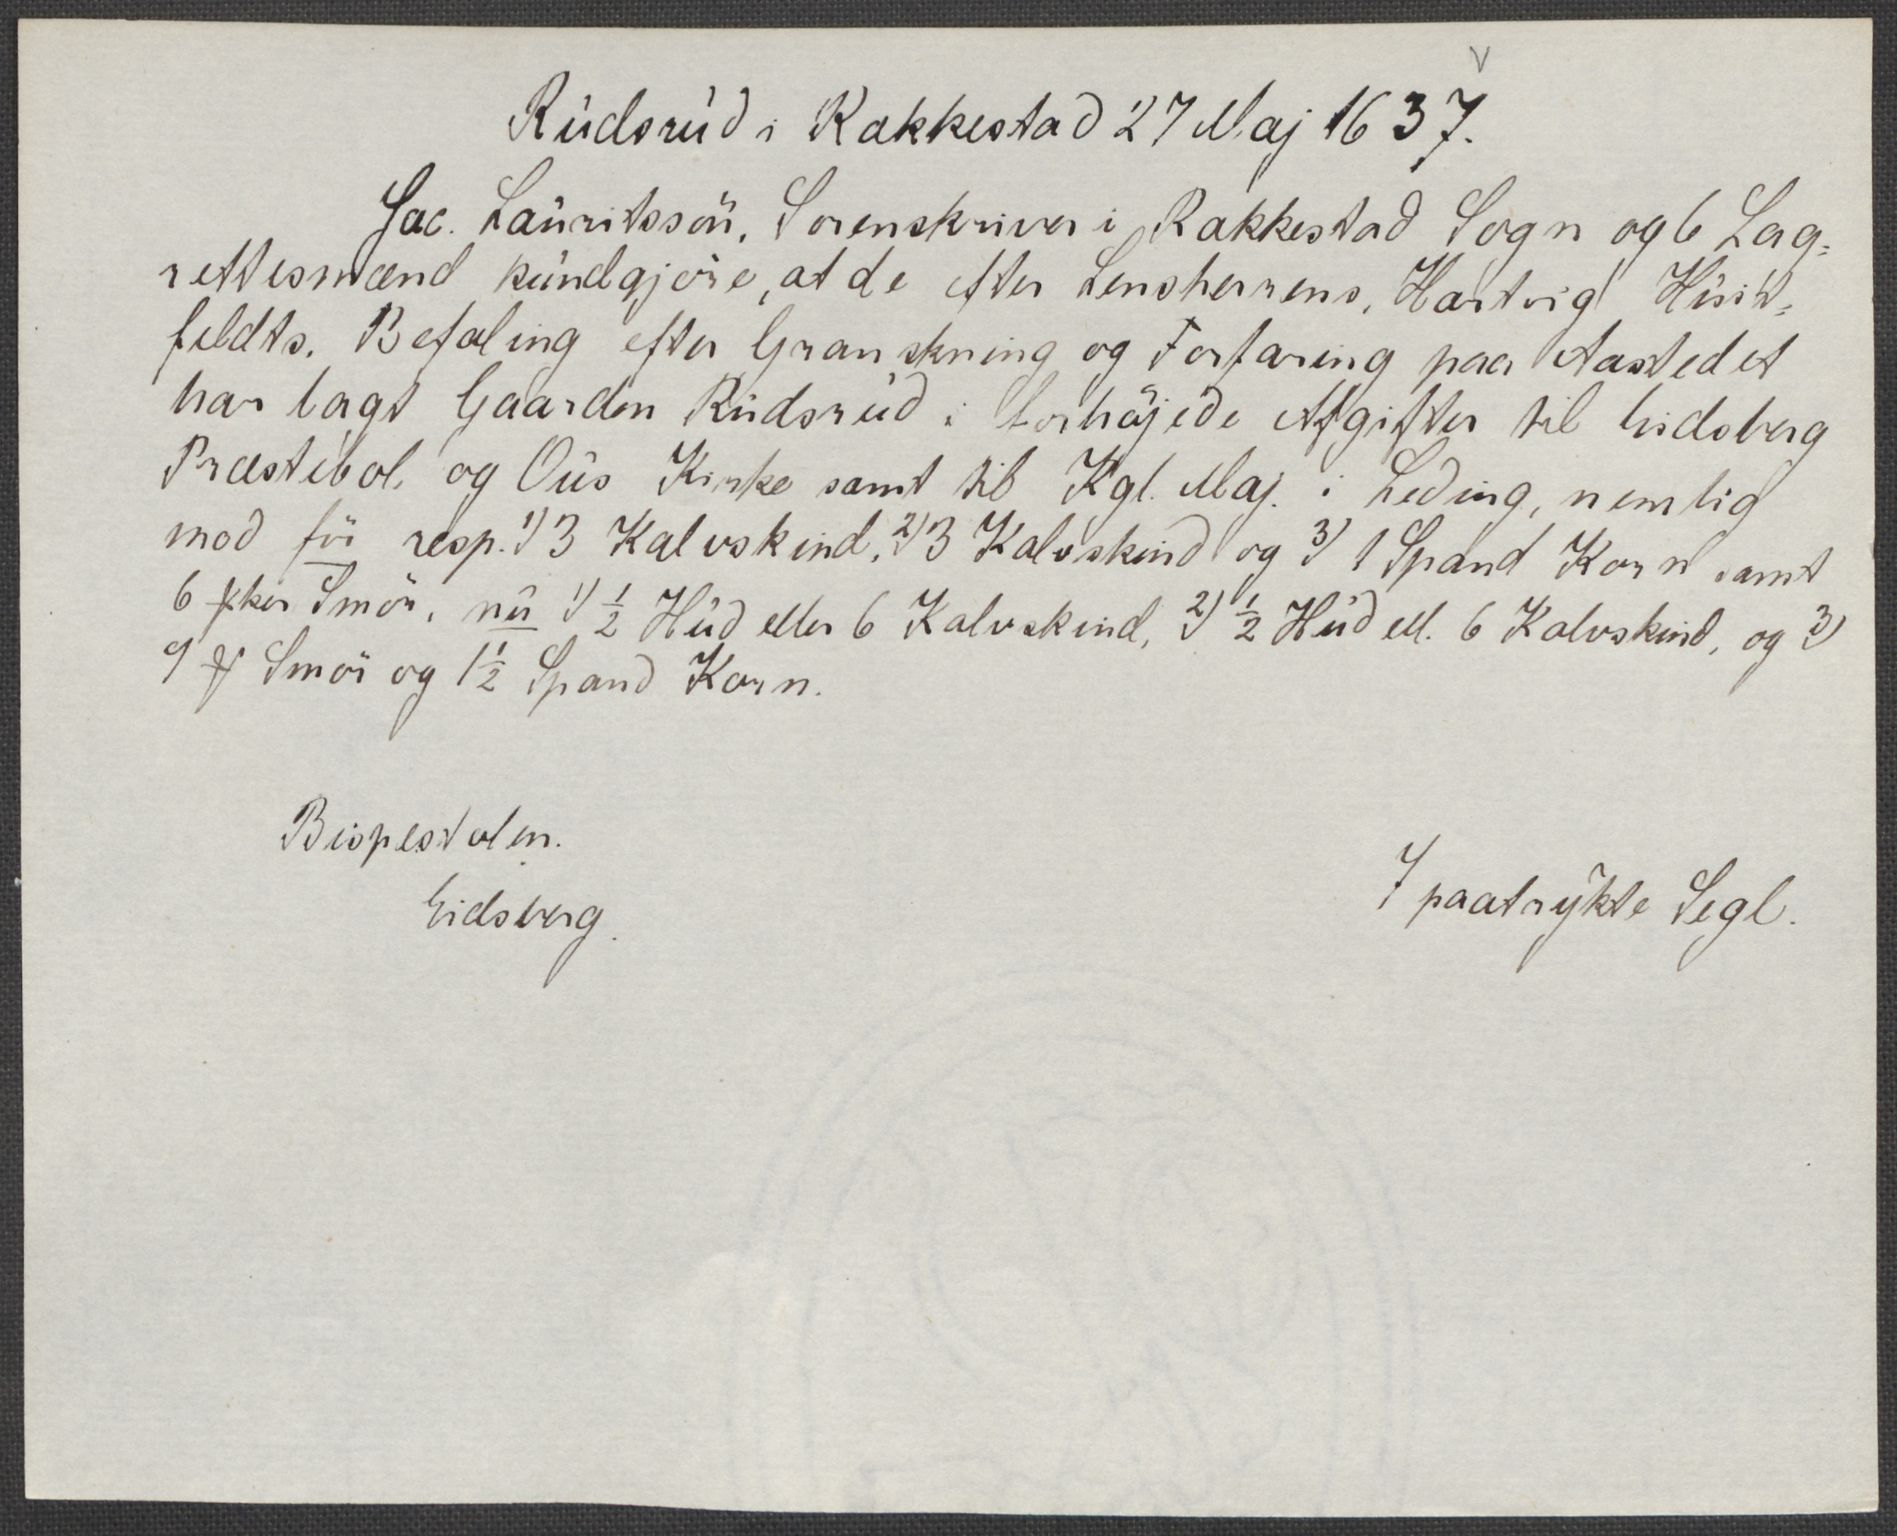 Rudsrud i Rakkestad 27 Maj 1637.
Jac. Lauritssön, Sorenskriver i Rakkestad Sogn og 6 Lag=
rettesmænd kundgjöre, at de efter Lensherrens, Hartvig Huit=
feldts, Befaling efter Granskning og Forfaring paa Aastedet
har lagt Gaarden Rudsrud i forhöjede Afgifter til Eidsberg
Præstebol, og Ous Kirke samt til Kgl. Maj. i Leding, nemlig
mod för resp. 1) 3 Kalvskind, 2) 3 Kalvskind og 3) 1 Spand Korn samt
6 ker Smör, nu 1) ½ Hud eller 6 Kalvskind, 2) ½ Hud ell. 6 Kalvskind, og 3)
9 Smör og 1½ Spand Korn.
Bispestolen.
Eidsberg.
7 paatrykte Segl.